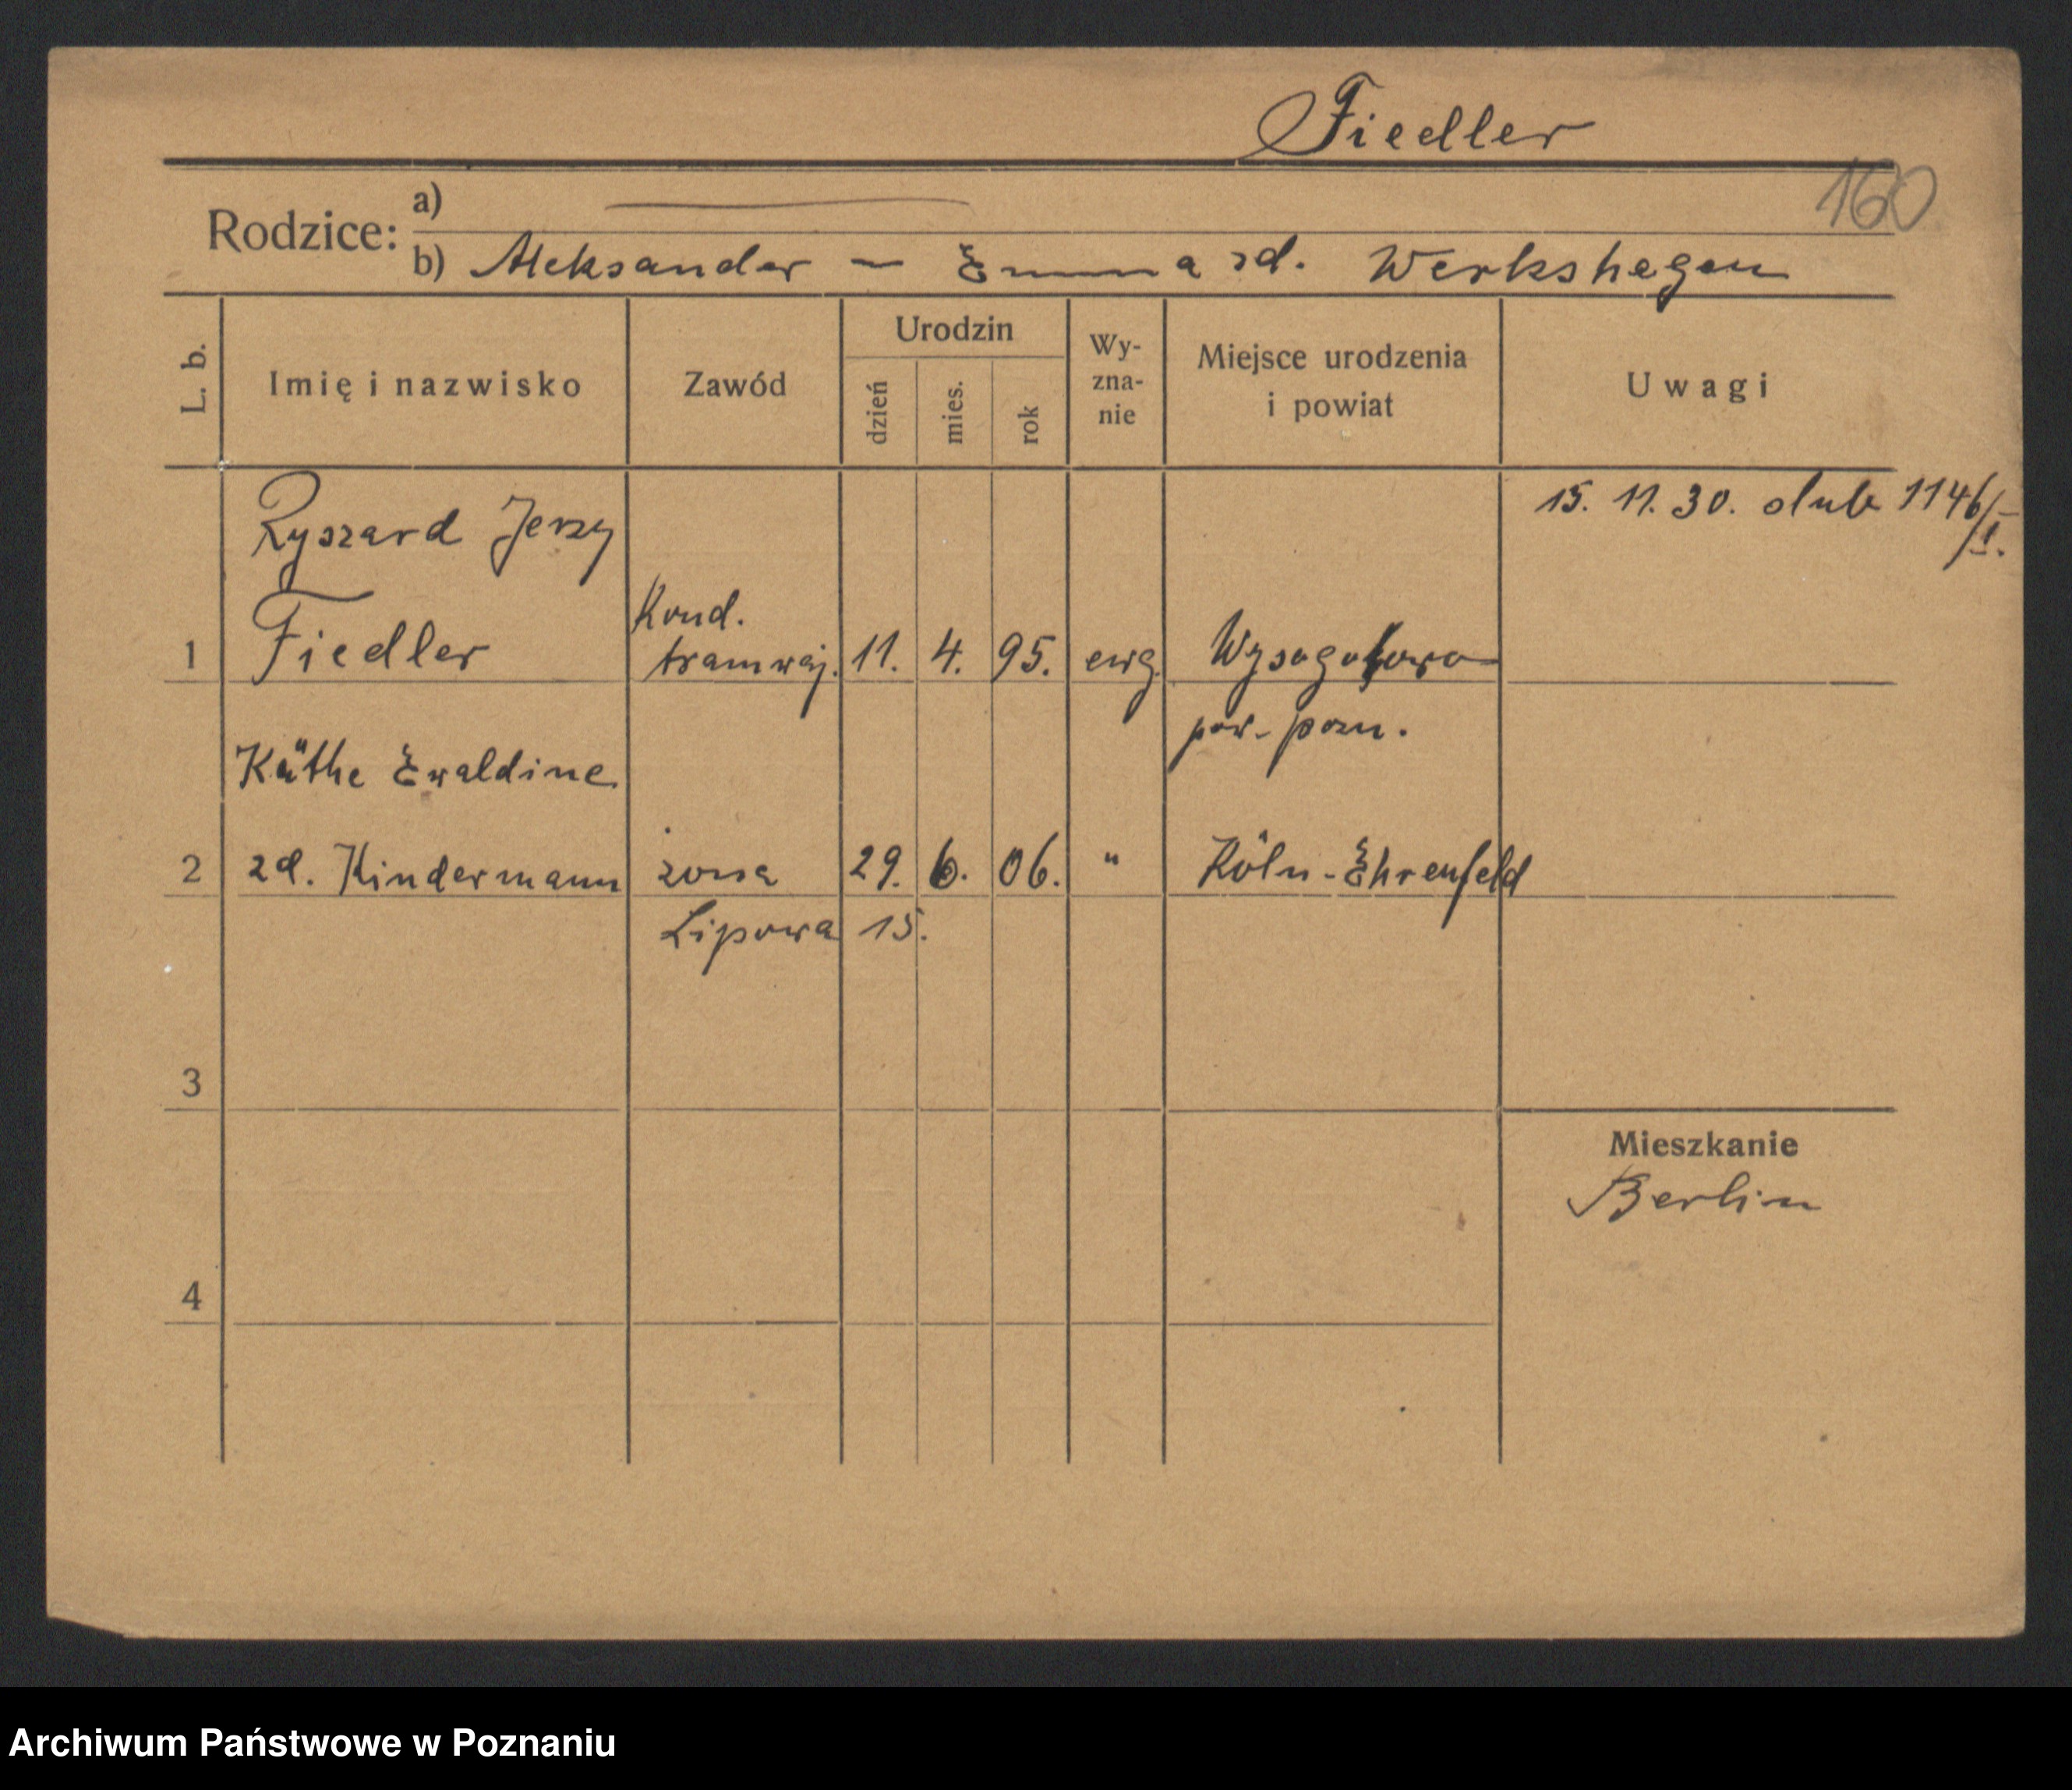 Fiedler
160
Rodzice:
a)
b) Aleksander – Emma zd. Werkshagen
L. b.
Imię i nazwisko
Zawód
Urodzin
dzień
mies.
rok
Wy-
zna-
nie
Miejsce urodzenia
i powiat
Uwagi
15. 11. 30. ślub 1146/I.
Ryszard Jerzy
1 Fiedler
Kond.
tramwaj. 11. 4. 95. ewg. Wysogotowo
pow. pozn.
Käthe Ewaldine
2 zd. Kindermann żona 29. 6. 06. " Köln-Ehrenfeld
Lipowa 15.
3
Mieszkanie
Berlin
4
Archiwum Państwowe w Poznaniu